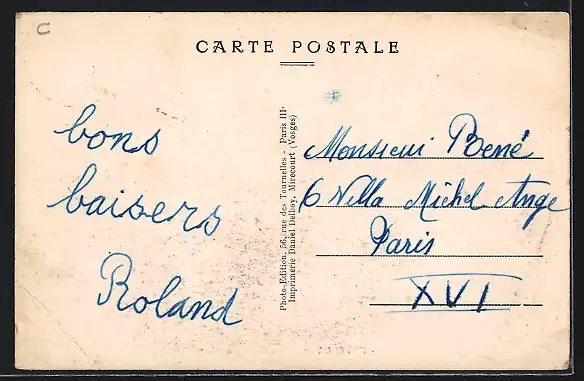 C
CARTE POSTALE
bons
baisers
Roland
Photo-Edition, 56, rue des Tournelles - Paris III·
Imprimerie Daniel Delboy, Mirecourt (Vosges)
Monsieur René
6 Villa Michel Ange
Paris
XVI